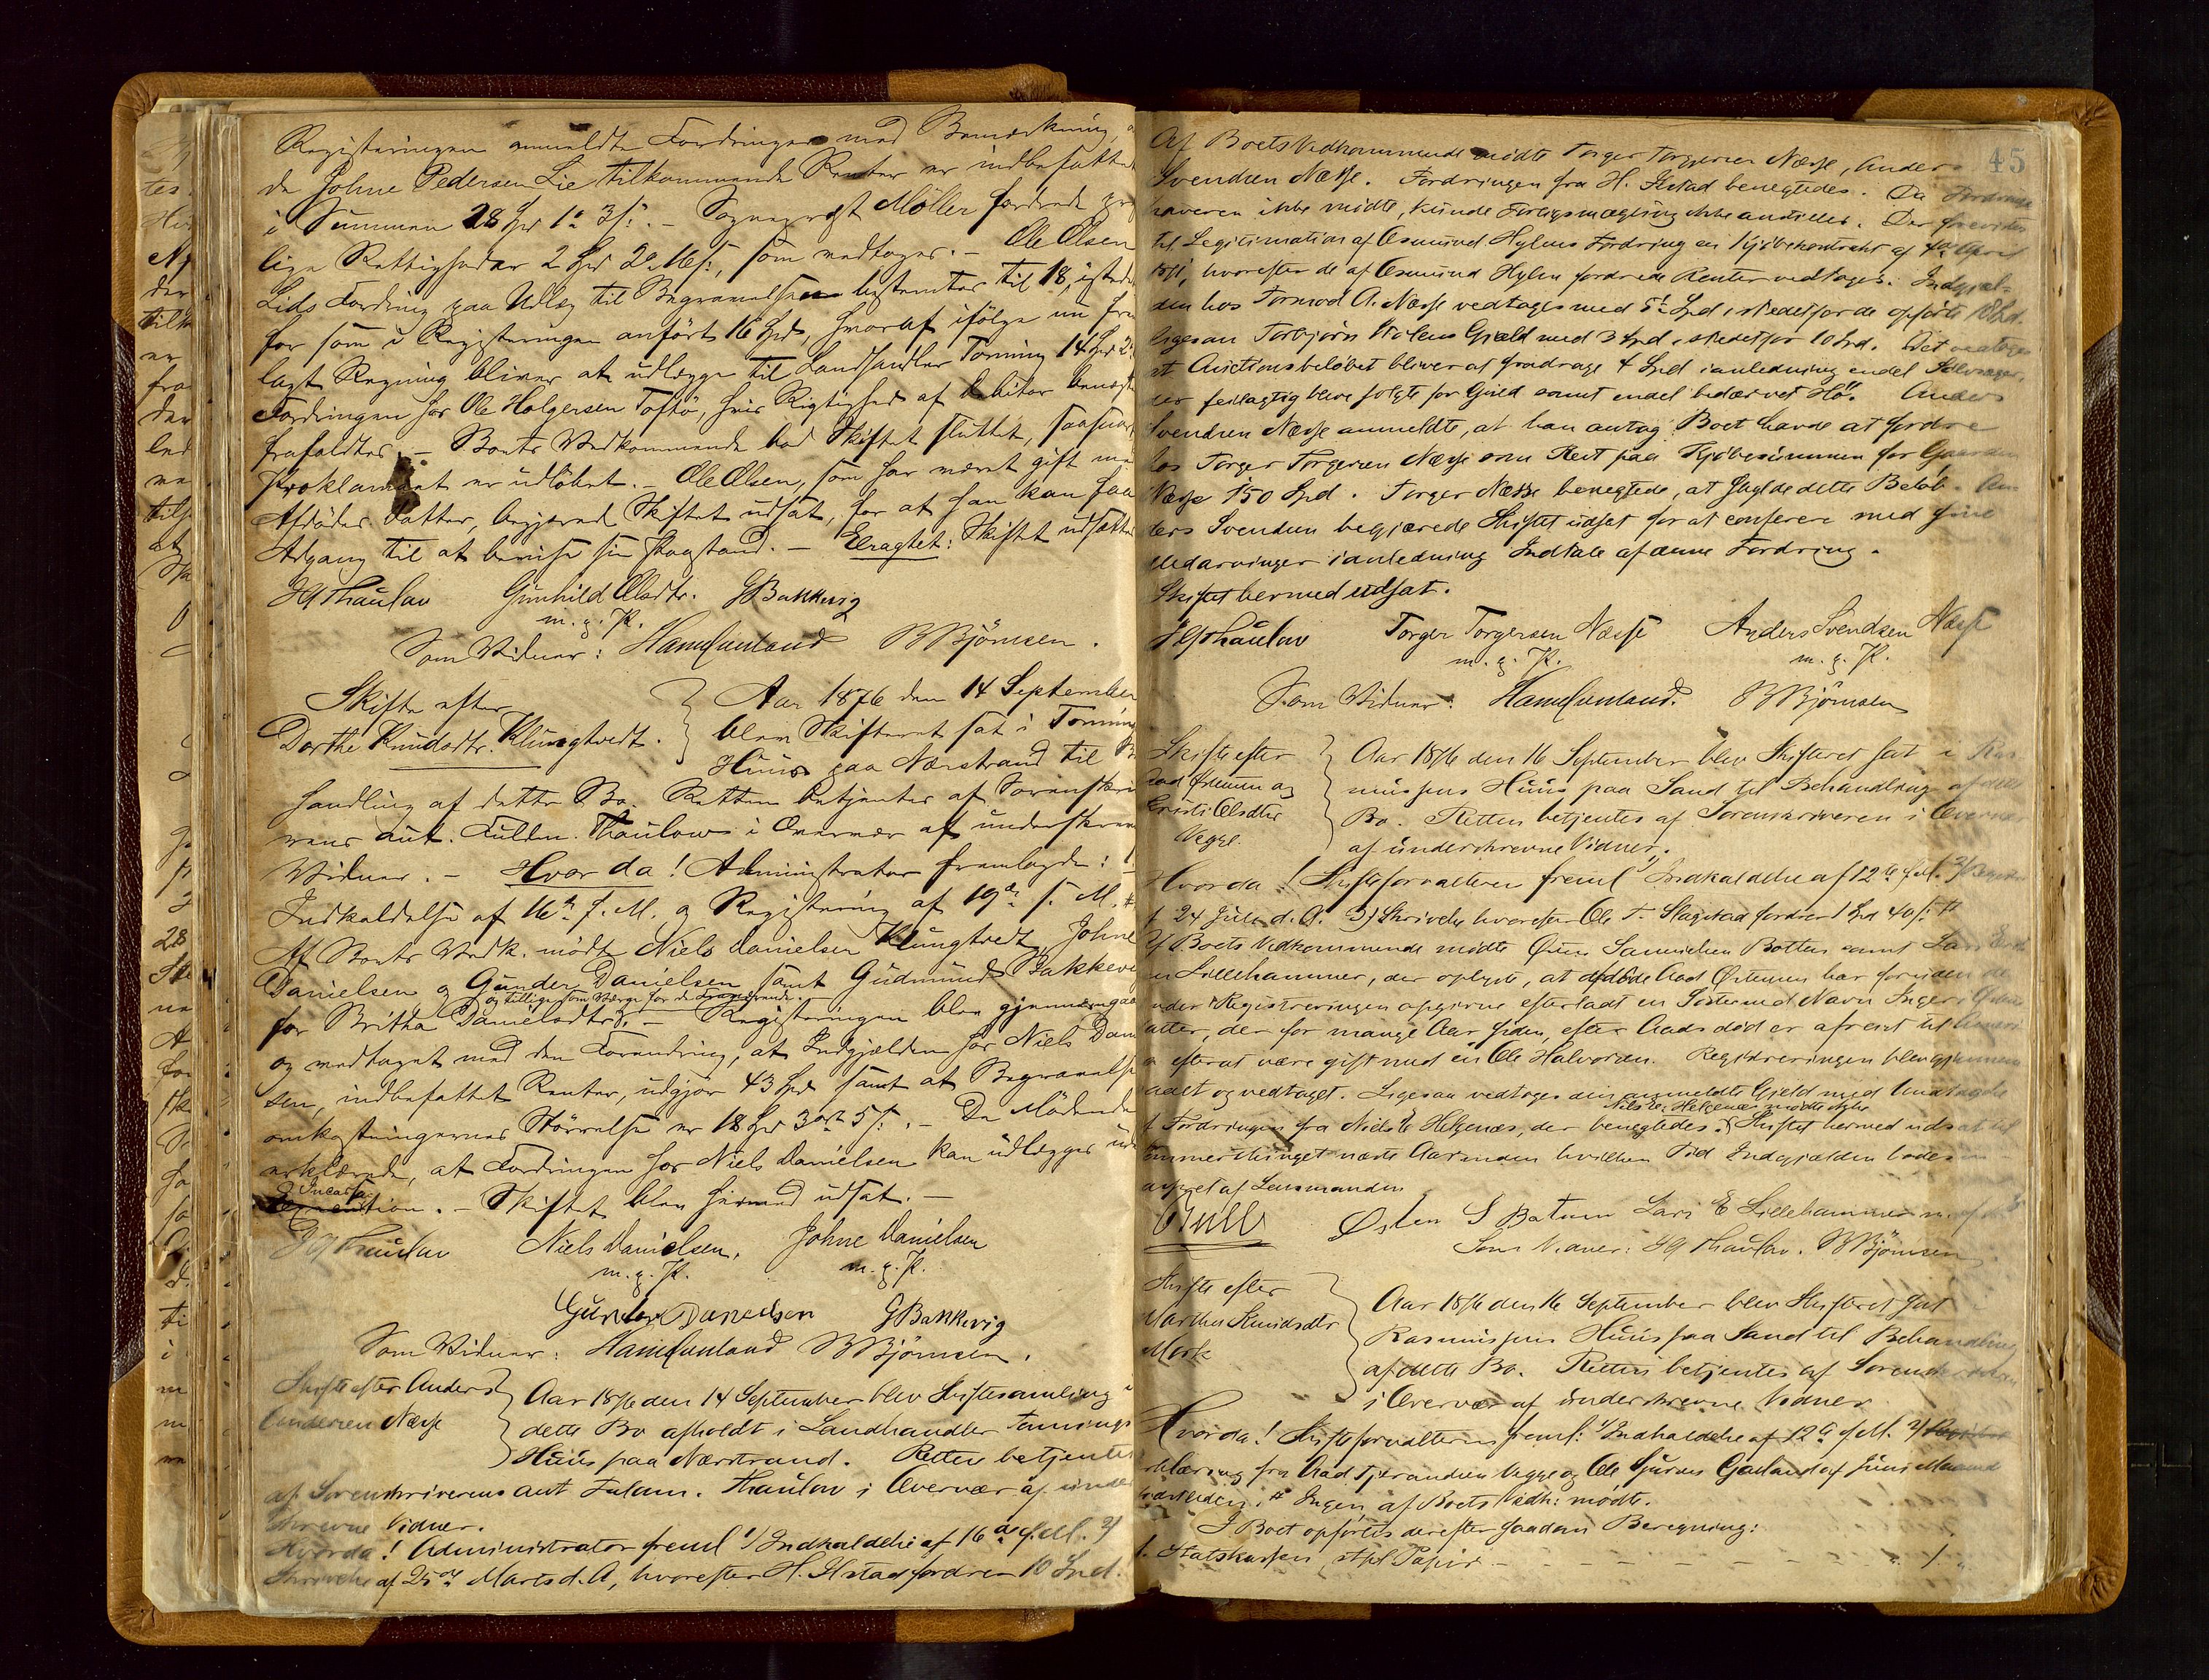 Registeringen anmeldte Fordringer med Bemærkning,
da Johne Pedersen Lie tilkommende Renter er indbefattede
i Summen 28 Spd 1 3 s. – Sogneprest Möller fordrede
lige Rettigheder 2 Spd 2, som vedtoges. – Ole Olsen
Lids Fordring paa Udlæg til Begravelsen bestemtes til 18, istede
for som i Registeringen anført 16 Spd, hvoraf ifölge en frem
lagt Regning bliver at udlægge til Landhandler Torning 14 Spd 2
Fordringen hos Ole Holgersen Toftö, hvis Rigtighed af Debitor benegt
frafaldtes. – Boets Vedkommende bad Skiftet sluttet, saasnart
Proklamaet er udlöbet. – Ole Olsen, som har været gift med
Afdödes Datter, begjerede Skiftet udsat, for at han kan faa
Adgang til at bevise sin Paastand. – Eragtet: Skiftet udsættes
J G Thaulow Gunhild Olsdtr. G Bakkevig
m. p. P.
Som Vidner: B Bjömsen.
Skifte efter
Dorthe Knudsdtr. Klungtvedt.
Aar 1876 den 14 September
blev Skifteret sat i Torning
Huus paa Nærstrand til Be
handling af dette Bo. Retten betjentes af Sorenskri
vens aut. Fuldm. Thaulow i Overvær af underskrevne
Vidner. – Hvor da! Administrator fremlagde: 1
Indkaldelse af 16 f. M. og Registering af 19 s. M.
Af Boets Vedk. mödte Niels Danielsen Klungtvedt, Johne
Danielsen og Gunder Danielsen samt Gudmund Bakkevig
og tillige som Værge for de
for Britha Danielsdtr. – Registeringen blev gjennemgaaet
og vedtaget med den Forandring, at Indgjælden hos Niels Daniel
sen, indbefattet Renter, udgjør 43 Spd samt at Begravelses
omkostningernes Störrelse er 18 Spd 3 ort 5 s. – De Mödende
erklærede, at Fordringen hos Niels Danielsen kan udlægges uden
Incasso
. – Skiftet blev hermed udsat. –
J G Thaulow Niels Danielsen. Johne Danielsen
m. p. P. m. p. P.
Gunder Danielsen G Bakkevig
Som Vidner: B Bjömsen.
Skifte efter Anders
Andersen Næsse
Aar 1876 den 14 September blev Skiftesamling i
dette Bo afholdt i Landhandler Tornings
Huus paa Nærstrand. Retten betjentes
af Sorenskriverens aut Fuldm. Thaulow i Overvær af under
skrevne Vidner.
Hvorda! Administrator freml 1/ Indkaldelse af 16 f. M. 2/
Skrivelse af 25 Marts d. A, hvorefter H. Ilstad fordrer 10 Spd.
45
Af Boets Vedkommende mödte Torger Torgersen Næsse, Anders
Svendsen Næsse. Fordringen fra H. Ilstad benegtedes. Da Fordrings
haveren ikke mödte, kunde Forligsmægling ikke anstilles. Der
til Legitimation af Osmund Hylens Fordring en Kjöbekontrakt af 4 April
, hvorefter de af Osmund Hylen fordrede Renter vedtoges. Indgjæl-
den hos Tormod A. Næsse vedtoges med 5 Spd, istedetfor de opförte
ligesaa Torbjörn Gjæld med 3 Spd istedetfor 10 Spd. Det vedtoges
at Auctionsbeløbet bliver at fradrage 4 Spd i anledning endel
der feilagtig blive solgte for Guld samt endel bedærvet Hö. Anders
Svendsen Næsse anmeldte, at han antog Boet havde at fordre
hos Torger Torgersen Næsse som Rest paa Kjöbesummen for Gaarden
Næsse 150 Spd. Torger Næsse benegtede, at skylde dette Belöb. An
ders Svendsen begjærede Skiftet udsat for at conferere med sine
Medarvinger i anledning Indtale af denne Fordring.
Skiftet hermed udsat.
J G Thaulow Torger Torgersen Næsse Anders Svendsen Næsse
m. p. P. m. p. P.
Som Vidner: B Bjömsen
Skifte efter
Aad Østeinsen og
Kirsti Olsdtr
Vegge.
Aar 1876 den 16 September blev Skifteret sat i Ras
mussens Huus paa Sand til Behandling af dette
Bo. Retten betjentes af Sorenskriveren i Overvær
af underskrevne Vidner.
Hvorda! Skifteforvalteren freml 1/ Indkaldelse af 12 f. M. 2/ Register
af 24 Juli d. A. 3/ Skrivelse hvorefter Ole T. Slagstad fordrer 1 Spd 40 s.
Af Boets Vedkommende mödte samt Lars
Lillehammer, der oplyste, at afdöde Aad Østeinsen har foruden de
under Registreringen opgivne efterladt en Söster med Navn Inger
datter, der for mange Aar siden, efter Aads död er afreist til
efterat være gift med en Ole Halvorsen. Registreringen blev gjennem
gaaet og vedtaget. Ligesaa vedtoges den anmeldte Gjæld med Undtagelse
Niels E. Helgenæs mödte ikke
af Fordringen fra Niels E Helgenæs, der benegtedes. Skiftet hermed udsat til
Sommerthinget næste Aar inden hvilken Tid Indgjælden bedes
af Lensmanden
Bull Østen S Lars E Lillehammer
Som Vidner: J G Thaulow. B Bjömsen
Skifte efter
Marthe Knudsdtr
Mork
Aar 1876 den 16 September blev Skifteret sat
Rasmussens Huus paa Sand til Behandling
af dette Bo. Retten betjentes af Sorenskriveren
i Overvær af underskrevne Vidner
Hvorda! Skifteforvalteren freml: 1/ Indkaldelse af 12 f. M. 2/
Erklæring fra Aad Tjerandsen Vegge og Ole Garland af Juni Maaned
. Ingen af Boets Vedk: mödte.
I Boet opförtes derefter saadan Beregning:
1. Statskassen, stpl Papir - - - - - 1 "